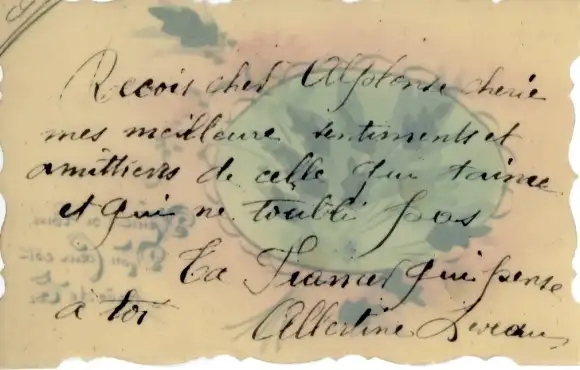 Recois cher Alphonse cherie
mes meilleure sentiments et
amittiers de celle qui t'aime
et qui ne t'oubli pas
Ta Fiancé qui pense
a toi Albertine